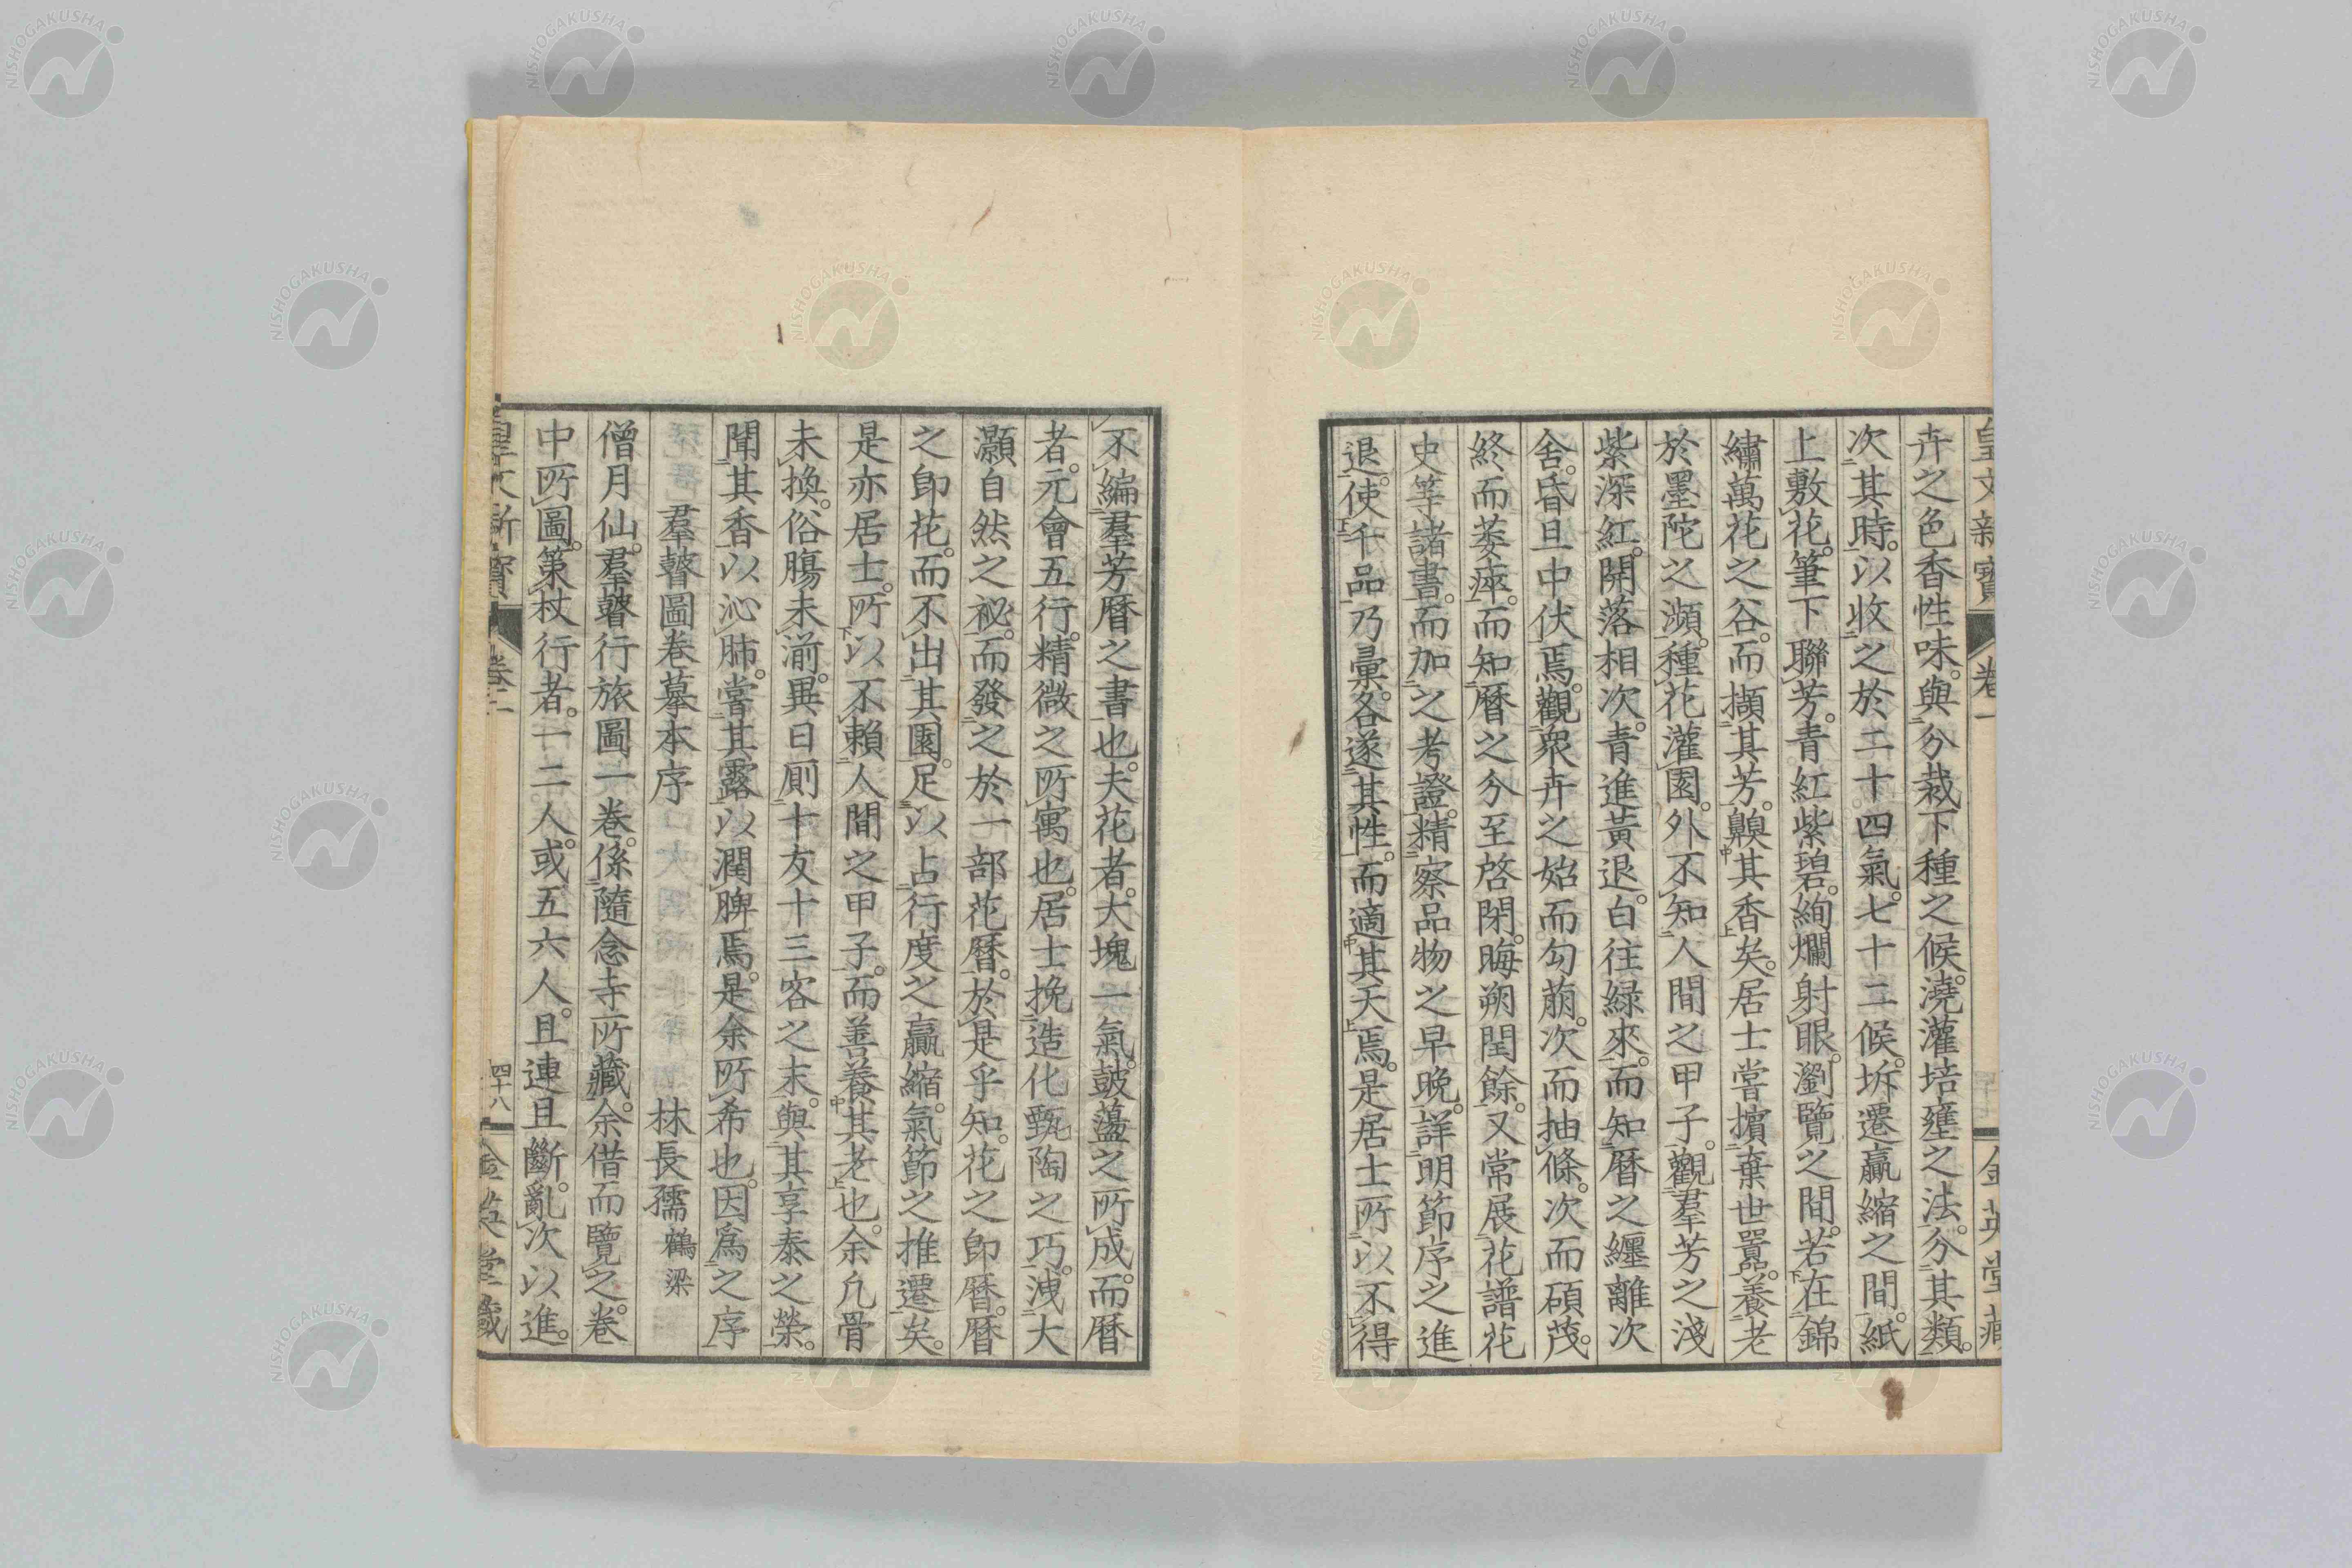 皇文新寶 卷一 金英堂藏
卉之色香性味。與分栽下種之候。澆灌培壅之法。分其類。
次其時。以收之於二十四氣。七十二候。坼遷贏縮之間。紙
上敷花。筆下聯芳。青紅紫碧。絢爛射眼。瀏覽之間。若在錦
繡萬花之谷。而擷其芳。齅其香矣。居士嘗擯棄世囂。養老
於墨陀之瀕。種花灌園。外不知人間之甲子。觀羣芳之淺
紫深紅。開落相次。青進黃退。白往綠來。而知曆之纏離次
舍。昏旦中伏焉。觀衆卉之始而勾萠。次而抽條。次而碩茂。
終而萎瘁。而知曆之分至啓閉。晦朔閏餘。又常展花譜花
史等諸書。而加之考證。精察品物之早晚。詳明節序之進
退。使千品乃彙。各遂其性。而適其天焉。是居士所以不得
不編羣芳曆之書也。夫花者。大塊一氣。皷蘯之所成。而曆
者。元會五行。精微之所寓也。居士挽造化甄陶之巧。洩大
灝自然之祕。而發之於一部花曆。於是乎知。花之卽曆。曆
之卽花。而不出其園。足以占行度之贏縮。氣節之推遷矣。
是亦居士。所以不賴人間之甲子。而善養其老也。余凡骨
未換。俗腸未湔。異日厠十友十三客之末。與其享泰之榮。
聞其香以沁肺。嘗其露以潤脾焉。是余所希也。因爲之序
羣瞽圖卷摹本序 林長孺 鶴梁
僧月仙。羣瞽行旅圖一卷。係隨念寺所藏。余借而覽之。卷
中所圖。策杖行者。一二人。或五六人。且連且斷。亂次以進。
皇文新寶 卷二 四十八 金英堂藏
NISHOGAKUSHA